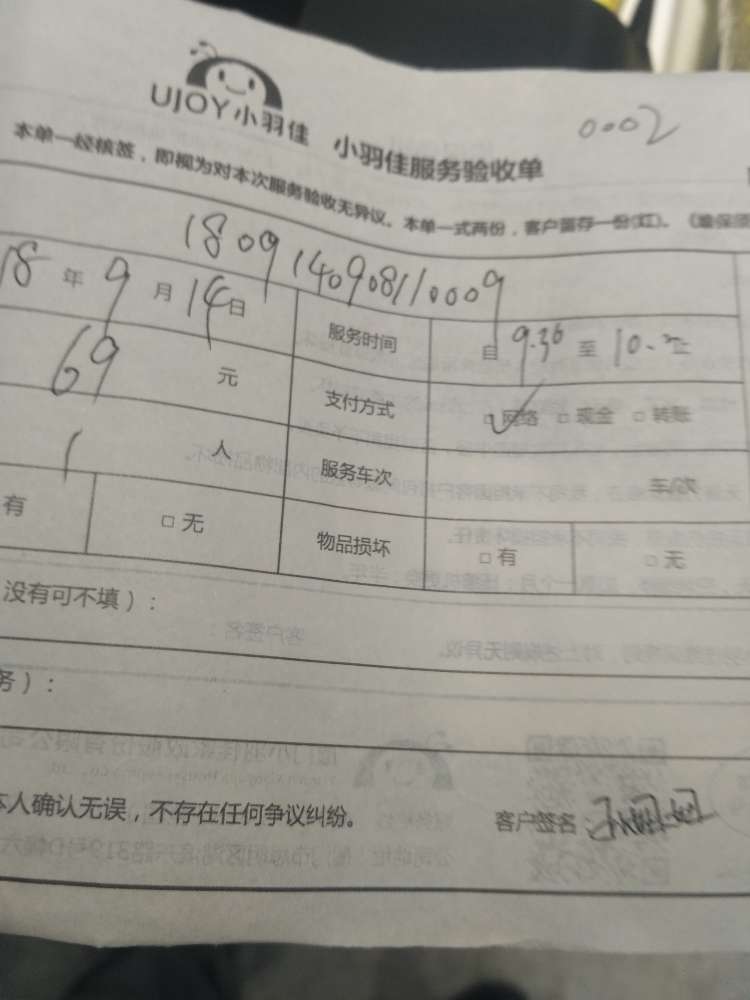 UJOY小羽佳 小羽佳服务验收单 0002
本单一经核签，即视为对本次服务验收无异议。本单一式两份，客户留存一份(红)。
1809140908110009
18年9月14日 服务时间 自9.30至10.
69元 支付方式 ☑网络 □现金 □转账
1人 服务车次 车/次
有 □无 物品损坏 □有 □无
没有可不填）：
务）：
本人确认无误，不存在任何争议纠纷。 客户签名：